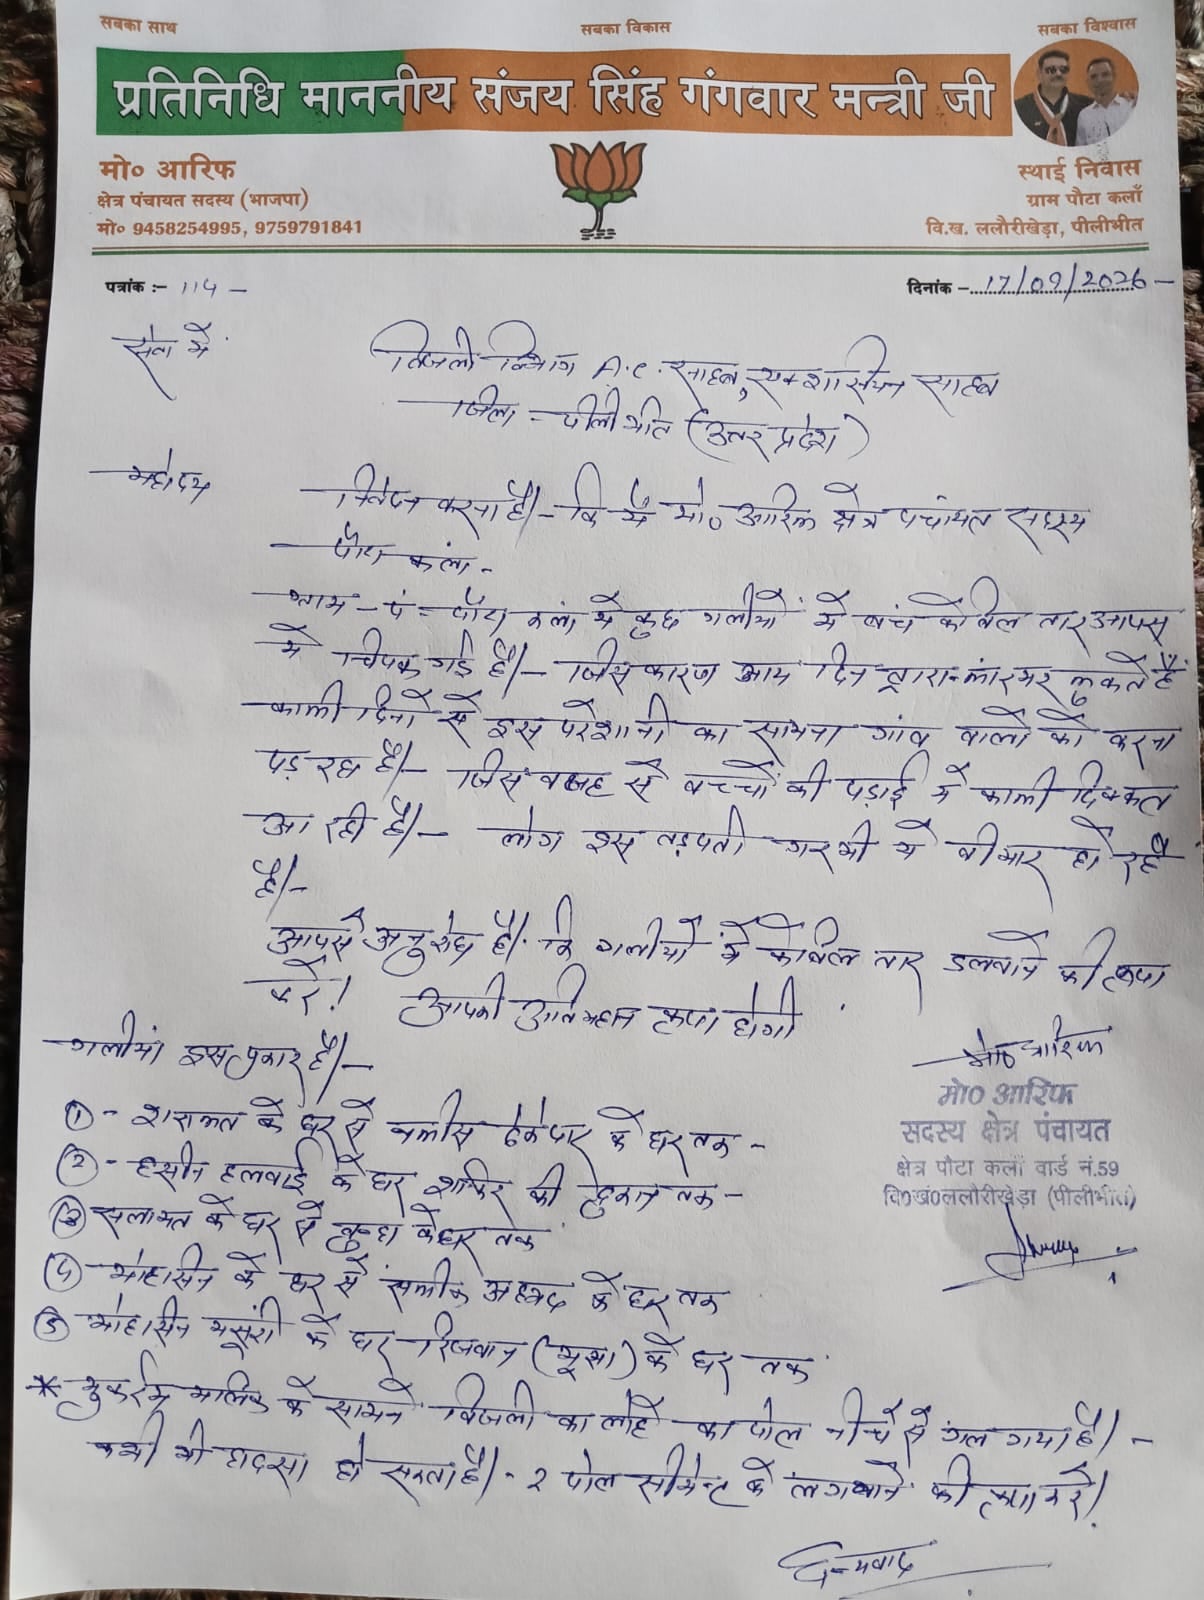 सबका साथ
सबका विकास
सबका विश्वास
प्रतिनिधि माननीय संजय सिंह गंगवार मन्त्री जी
मो० आरिफ
क्षेत्र पंचायत सदस्य (भाजपा)
मो० 9458254995, 9759791841
स्थाई निवास
ग्राम पौटा कलाँ
वि.ख. ललौरीखेड़ा, पीलीभीत
पत्रांक :- 114 -
दिनांक - 17/09/2026 -
सेवा में
बिजली विभाग A.C. साहब, एक्शासियन साहब
जिला - पीलीभीत (उत्तर प्रदेश)
महोदय
निवेदन करना है।- कि मैं मो० आरिफ क्षेत्र पंचायत सदस्य
पौटा कलां -
ग्राम - पं - पौटा कलां मे कुछ गलीयों मे बंच केबिल तार आपस
मे चिपक गई है।- जिस कारण आय दिन फुकते हैं
काफी दिनो से इस परेशानी का सामना गांव वालो को करना
पड़ रहा है।- जिस वजह से बच्चों की पड़ाई मे काफी दिक्कत
आ रही है।- लोग इस तड़पती गरमी मे बीमार हो रहे
है।-
आपसे अनुरोध है। कि गलीयों मे केबिल तार डलवाने की कृपा
करे! आपकी अति महान कृपा होगी
गलीयां इस प्रकार है।-
मो० आरिफ
मो० आरिफ
सदस्य क्षेत्र पंचायत
क्षेत्र पौटा कलाँ वार्ड नं.59
वि०खं०ललौरीखेड़ा (पीलीभीत)
① - शराफत के घर से नफीस ठेकेदार के घर तक -
② - हसीन हलवाई के घर शाकिर की दुकान तक -
③ सलामत के घर से के घर तक
④ मोहासीन के घर से अहमद के घर तक
⑤ मोहासीन मसूरी के घर रिजवान (भूसा) के घर तक
* मुकर्रम मालिक के सामने बिजली का लोहे का पोल नीचे से गल गया है। -
कभी भी हादसा हो सकता है। - 2 पोल सीमेन्ट के लगवाने की कृपा करे!
धन्यवाद